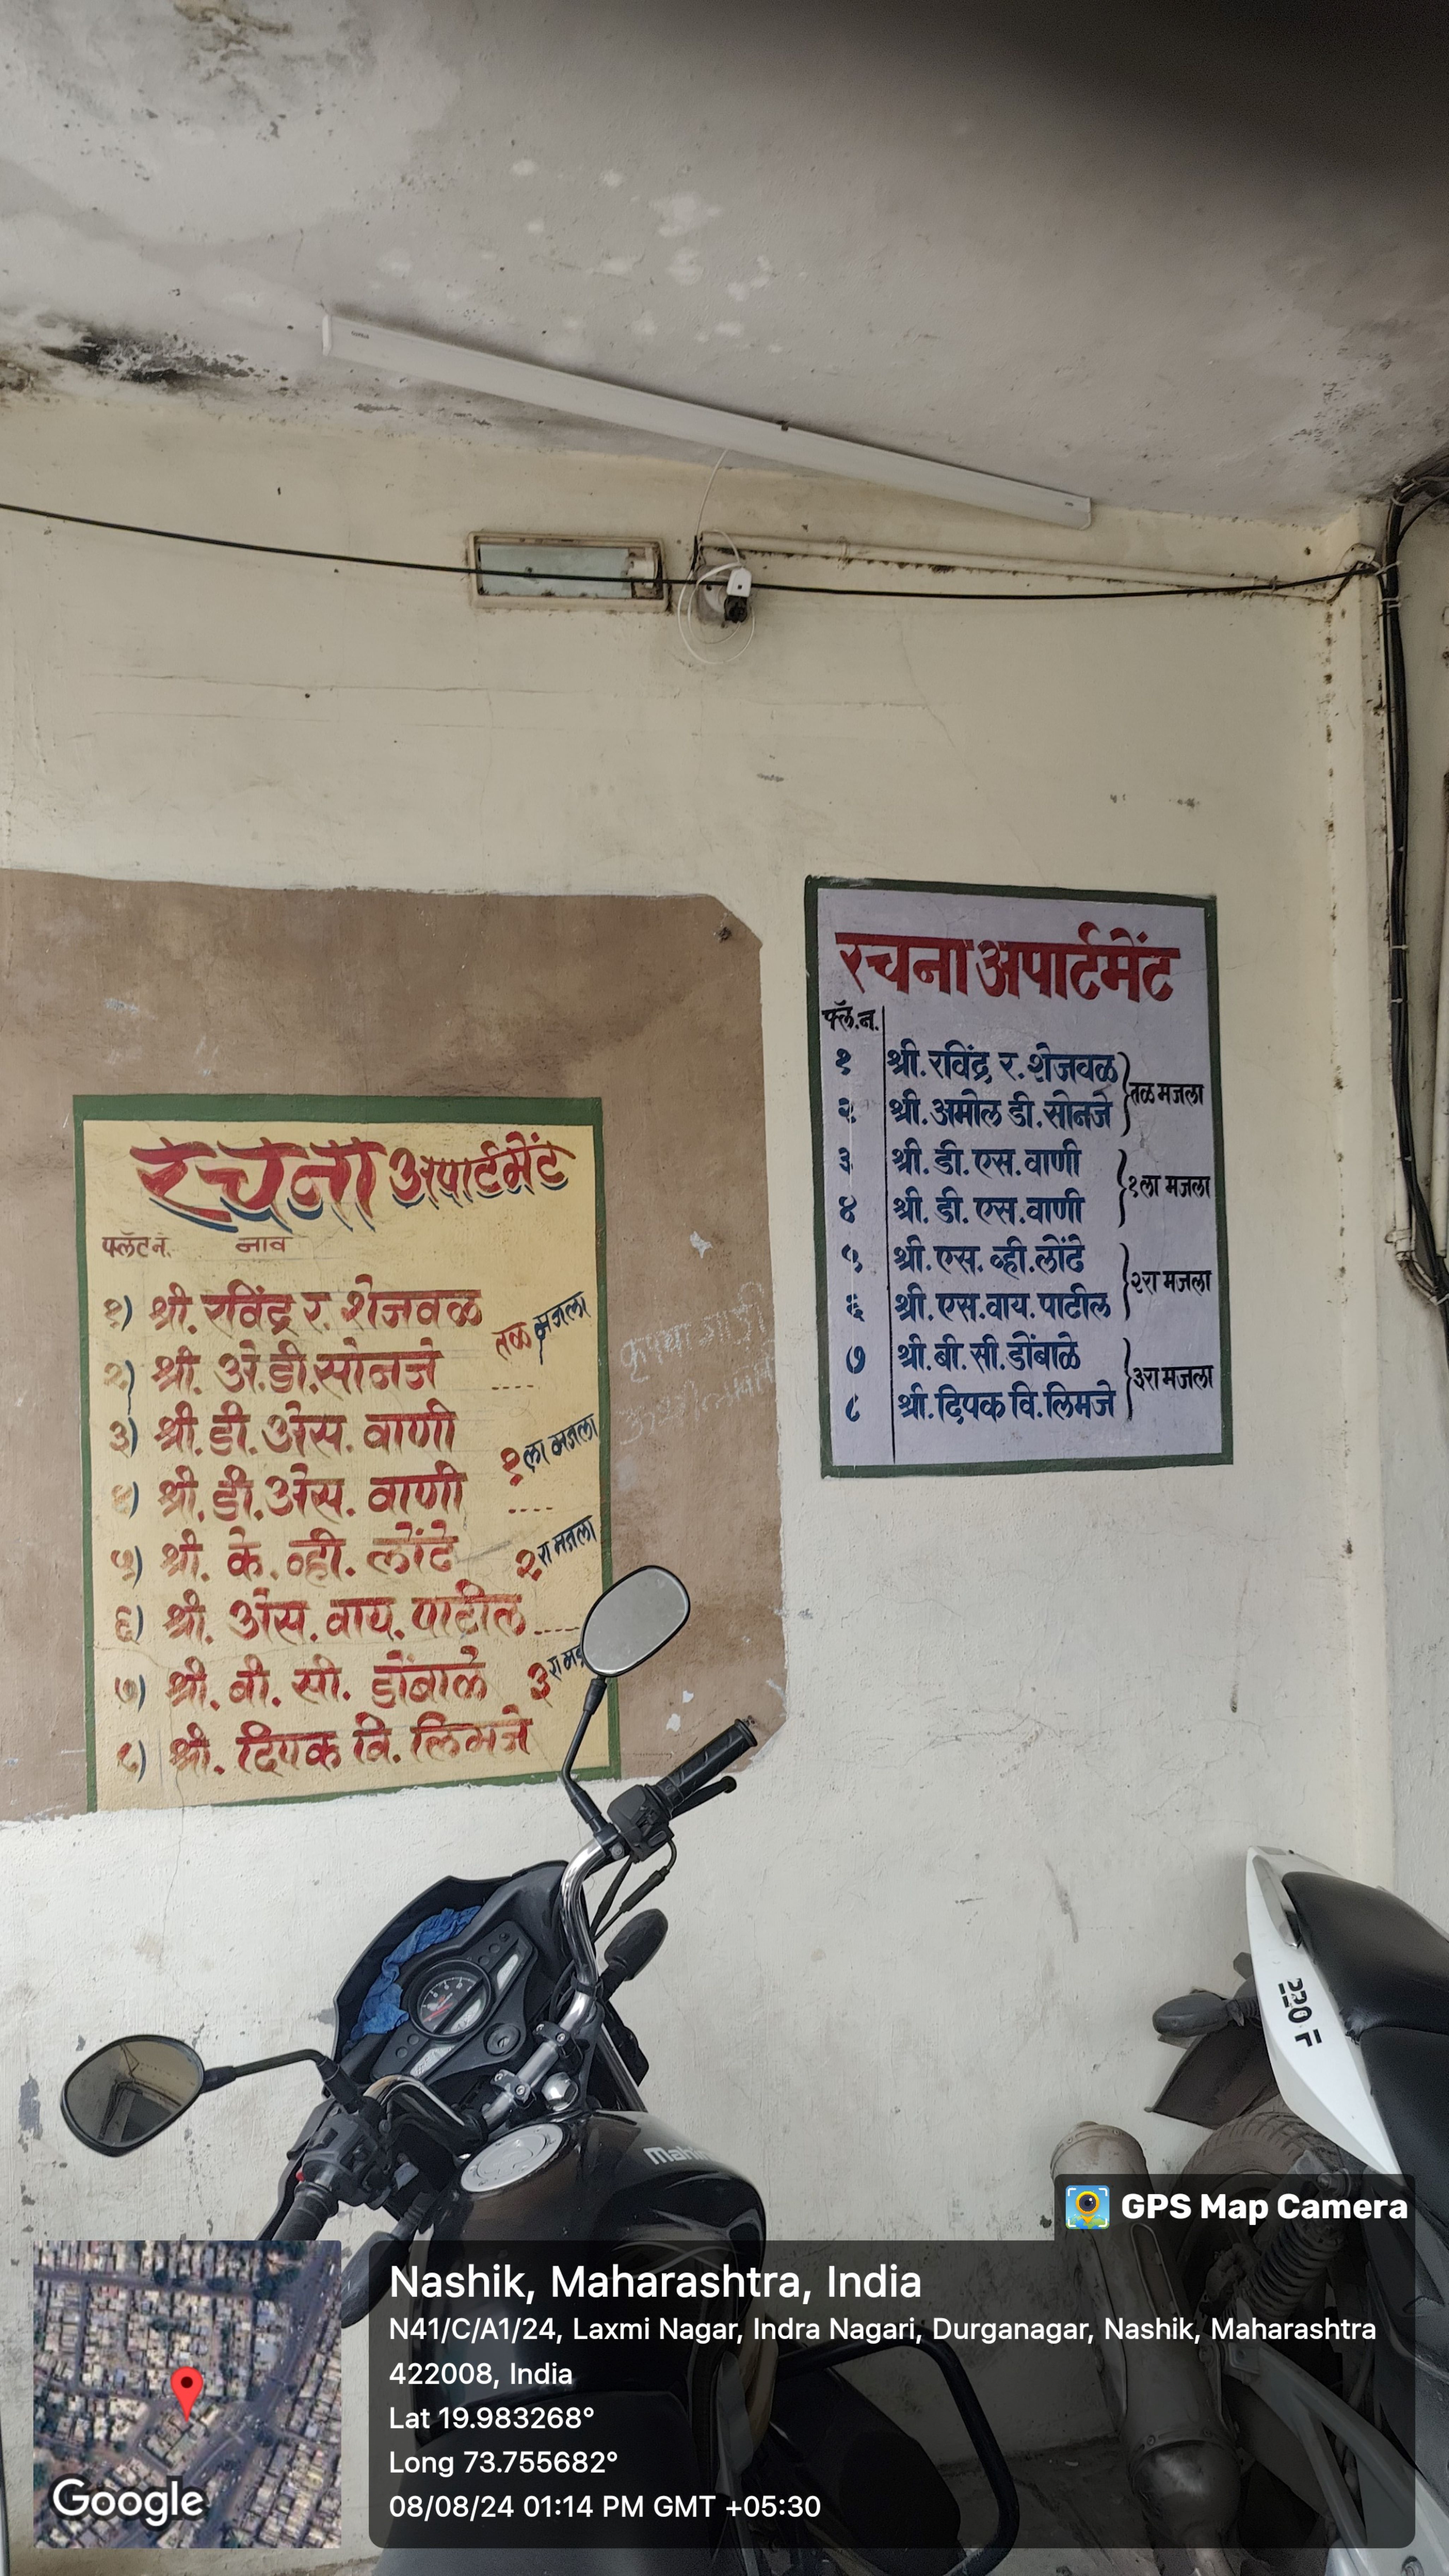 रचना अपार्टमेंट
फ्लॅट नं. नाव
१) श्री. रविंद्र र. शेजवळ
तळ मजला
२) श्री. अे.डी.सोनजे
३) श्री.डी.अेस. वाणी
१ला मजला
४) श्री.डी.अेस. वाणी
५) श्री. के. व्ही. लोंढे
२रा मजला
६) श्री. अेस. वाय. पाटील
७) श्री. बी. सी. डोंबाळे
३रा
८) श्री. दिपक वि. लिमजे
कृपया गाडी
रचना अपार्टमेंट
फ्लॅ.न.
१ श्री. रविंद्र र. शेजवळ
२ श्री. अमोल डी. सोनजे
तळ मजला
३ श्री. डी. एस. वाणी
४ श्री. डी. एस. वाणी
१ला मजला
५ श्री. एस. व्ही. लोंढे
६ श्री. एस. वाय. पाटील
२रा मजला
७ श्री. बी. सी. डोंबाळे
८ श्री. दिपक वि. लिमजे
३रा मजला
220 F
GPS Map Camera
Nashik, Maharashtra, India
N41/C/A1/24, Laxmi Nagar, Indra Nagari, Durganagar, Nashik, Maharashtra
422008, India
Lat 19.983268°
Long 73.755682°
08/08/24 01:14 PM GMT +05:30
Google